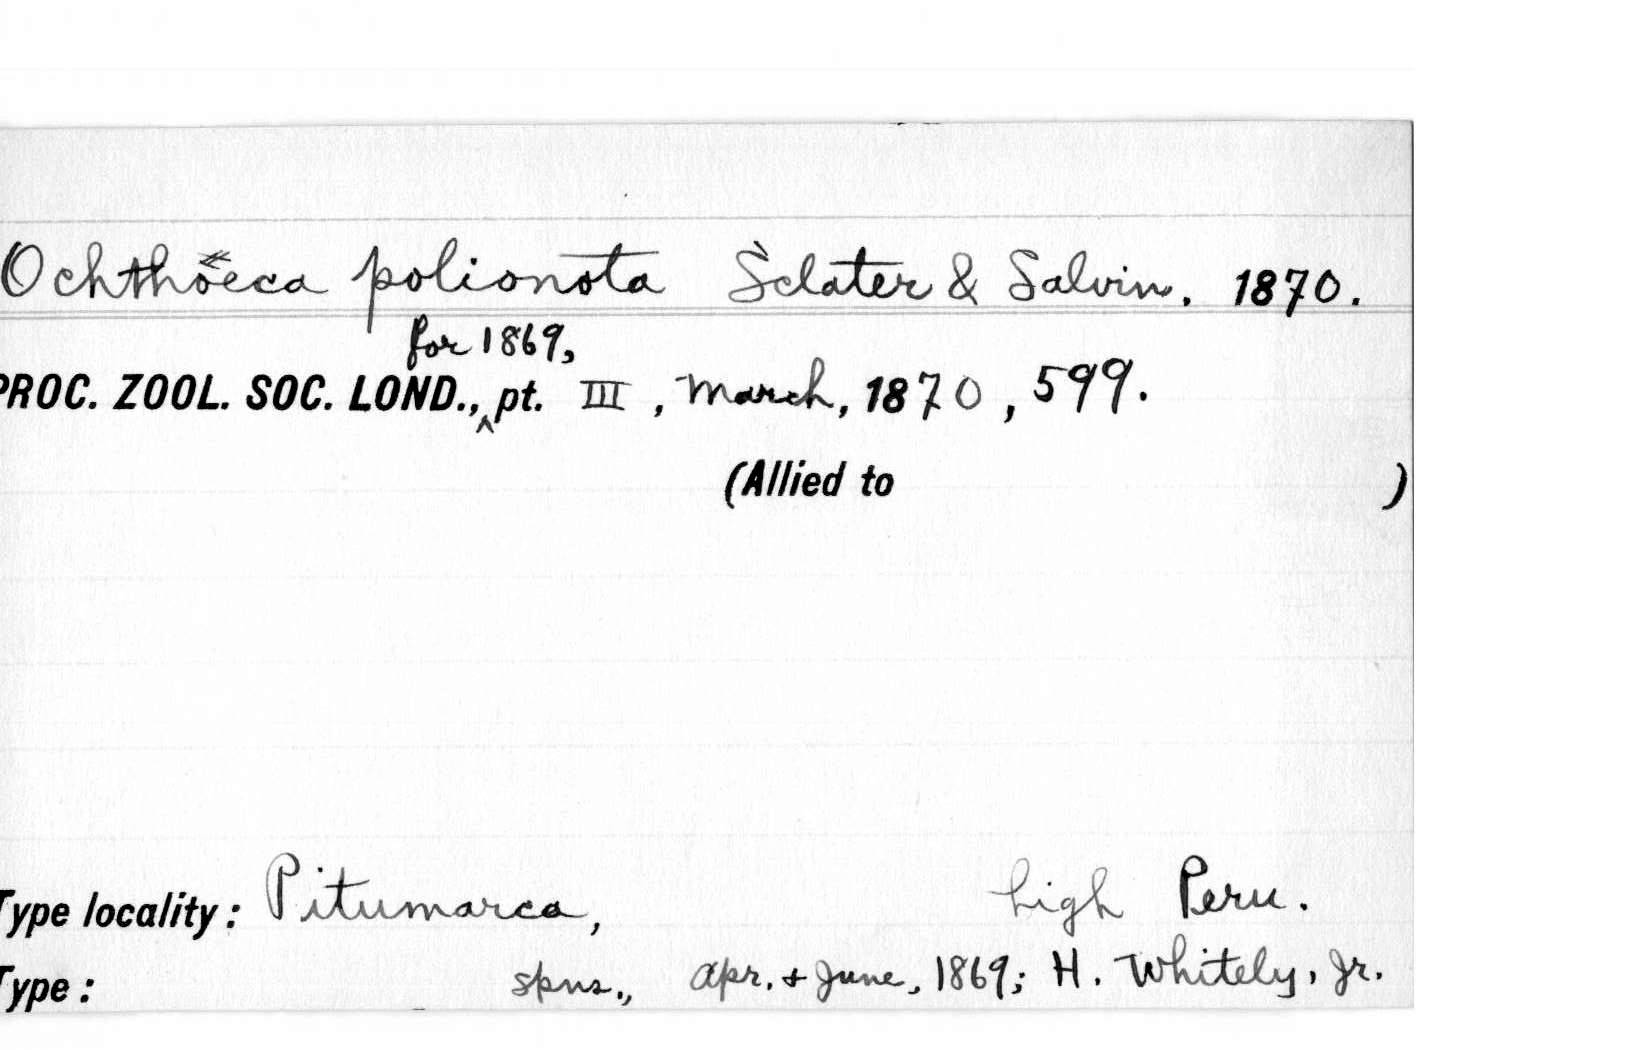 Ochthoeca polionota Sclater & Salvin. 1870.
for 1869,
PROC. ZOOL. SOC. LOND., ‸ pt. III, March, 1870, 599.
(Allied to )
Type locality: Pitumarca, high Peru.
Type: spns., Apr. + June, 1869; H. Whitely, Jr.